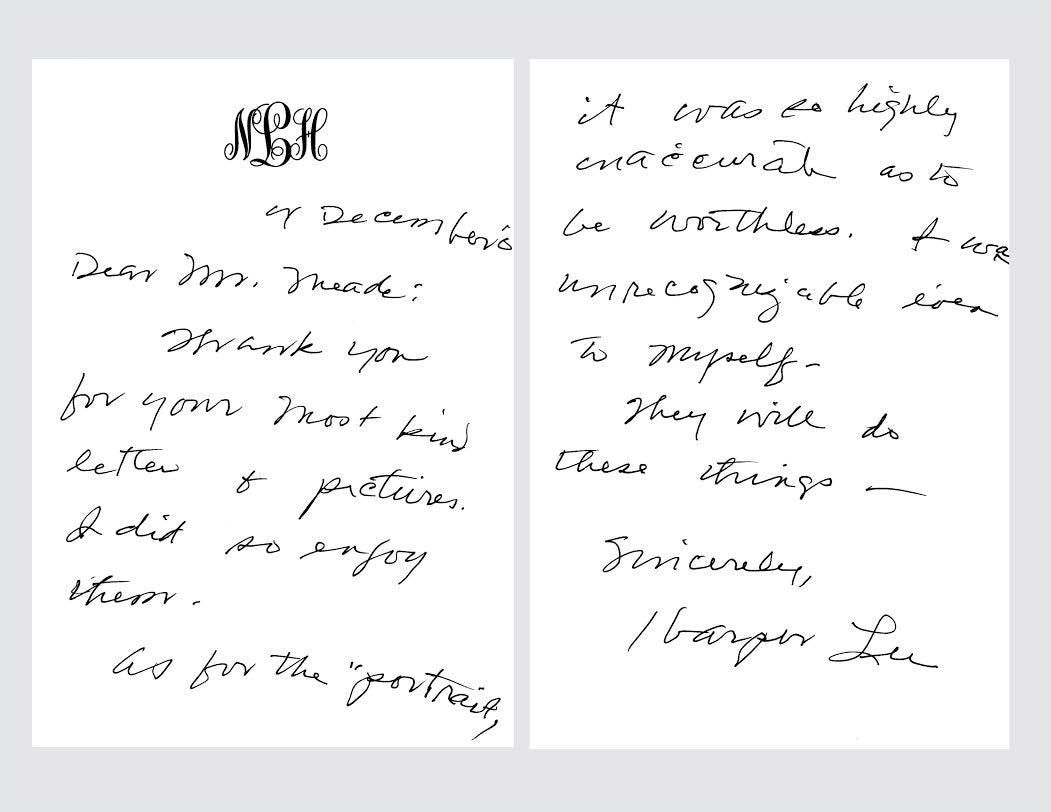 NLH
December
Dear Mr. Meade:
Thank you
for your most kind
letter & pictures.
I did so enjoy
them.
As for the "portrait,
it was so highly
inaccurate as to
be worthless. I was
unrecognizable even
to myself—
They will do
these things —
Sincerely,
Harper Lee